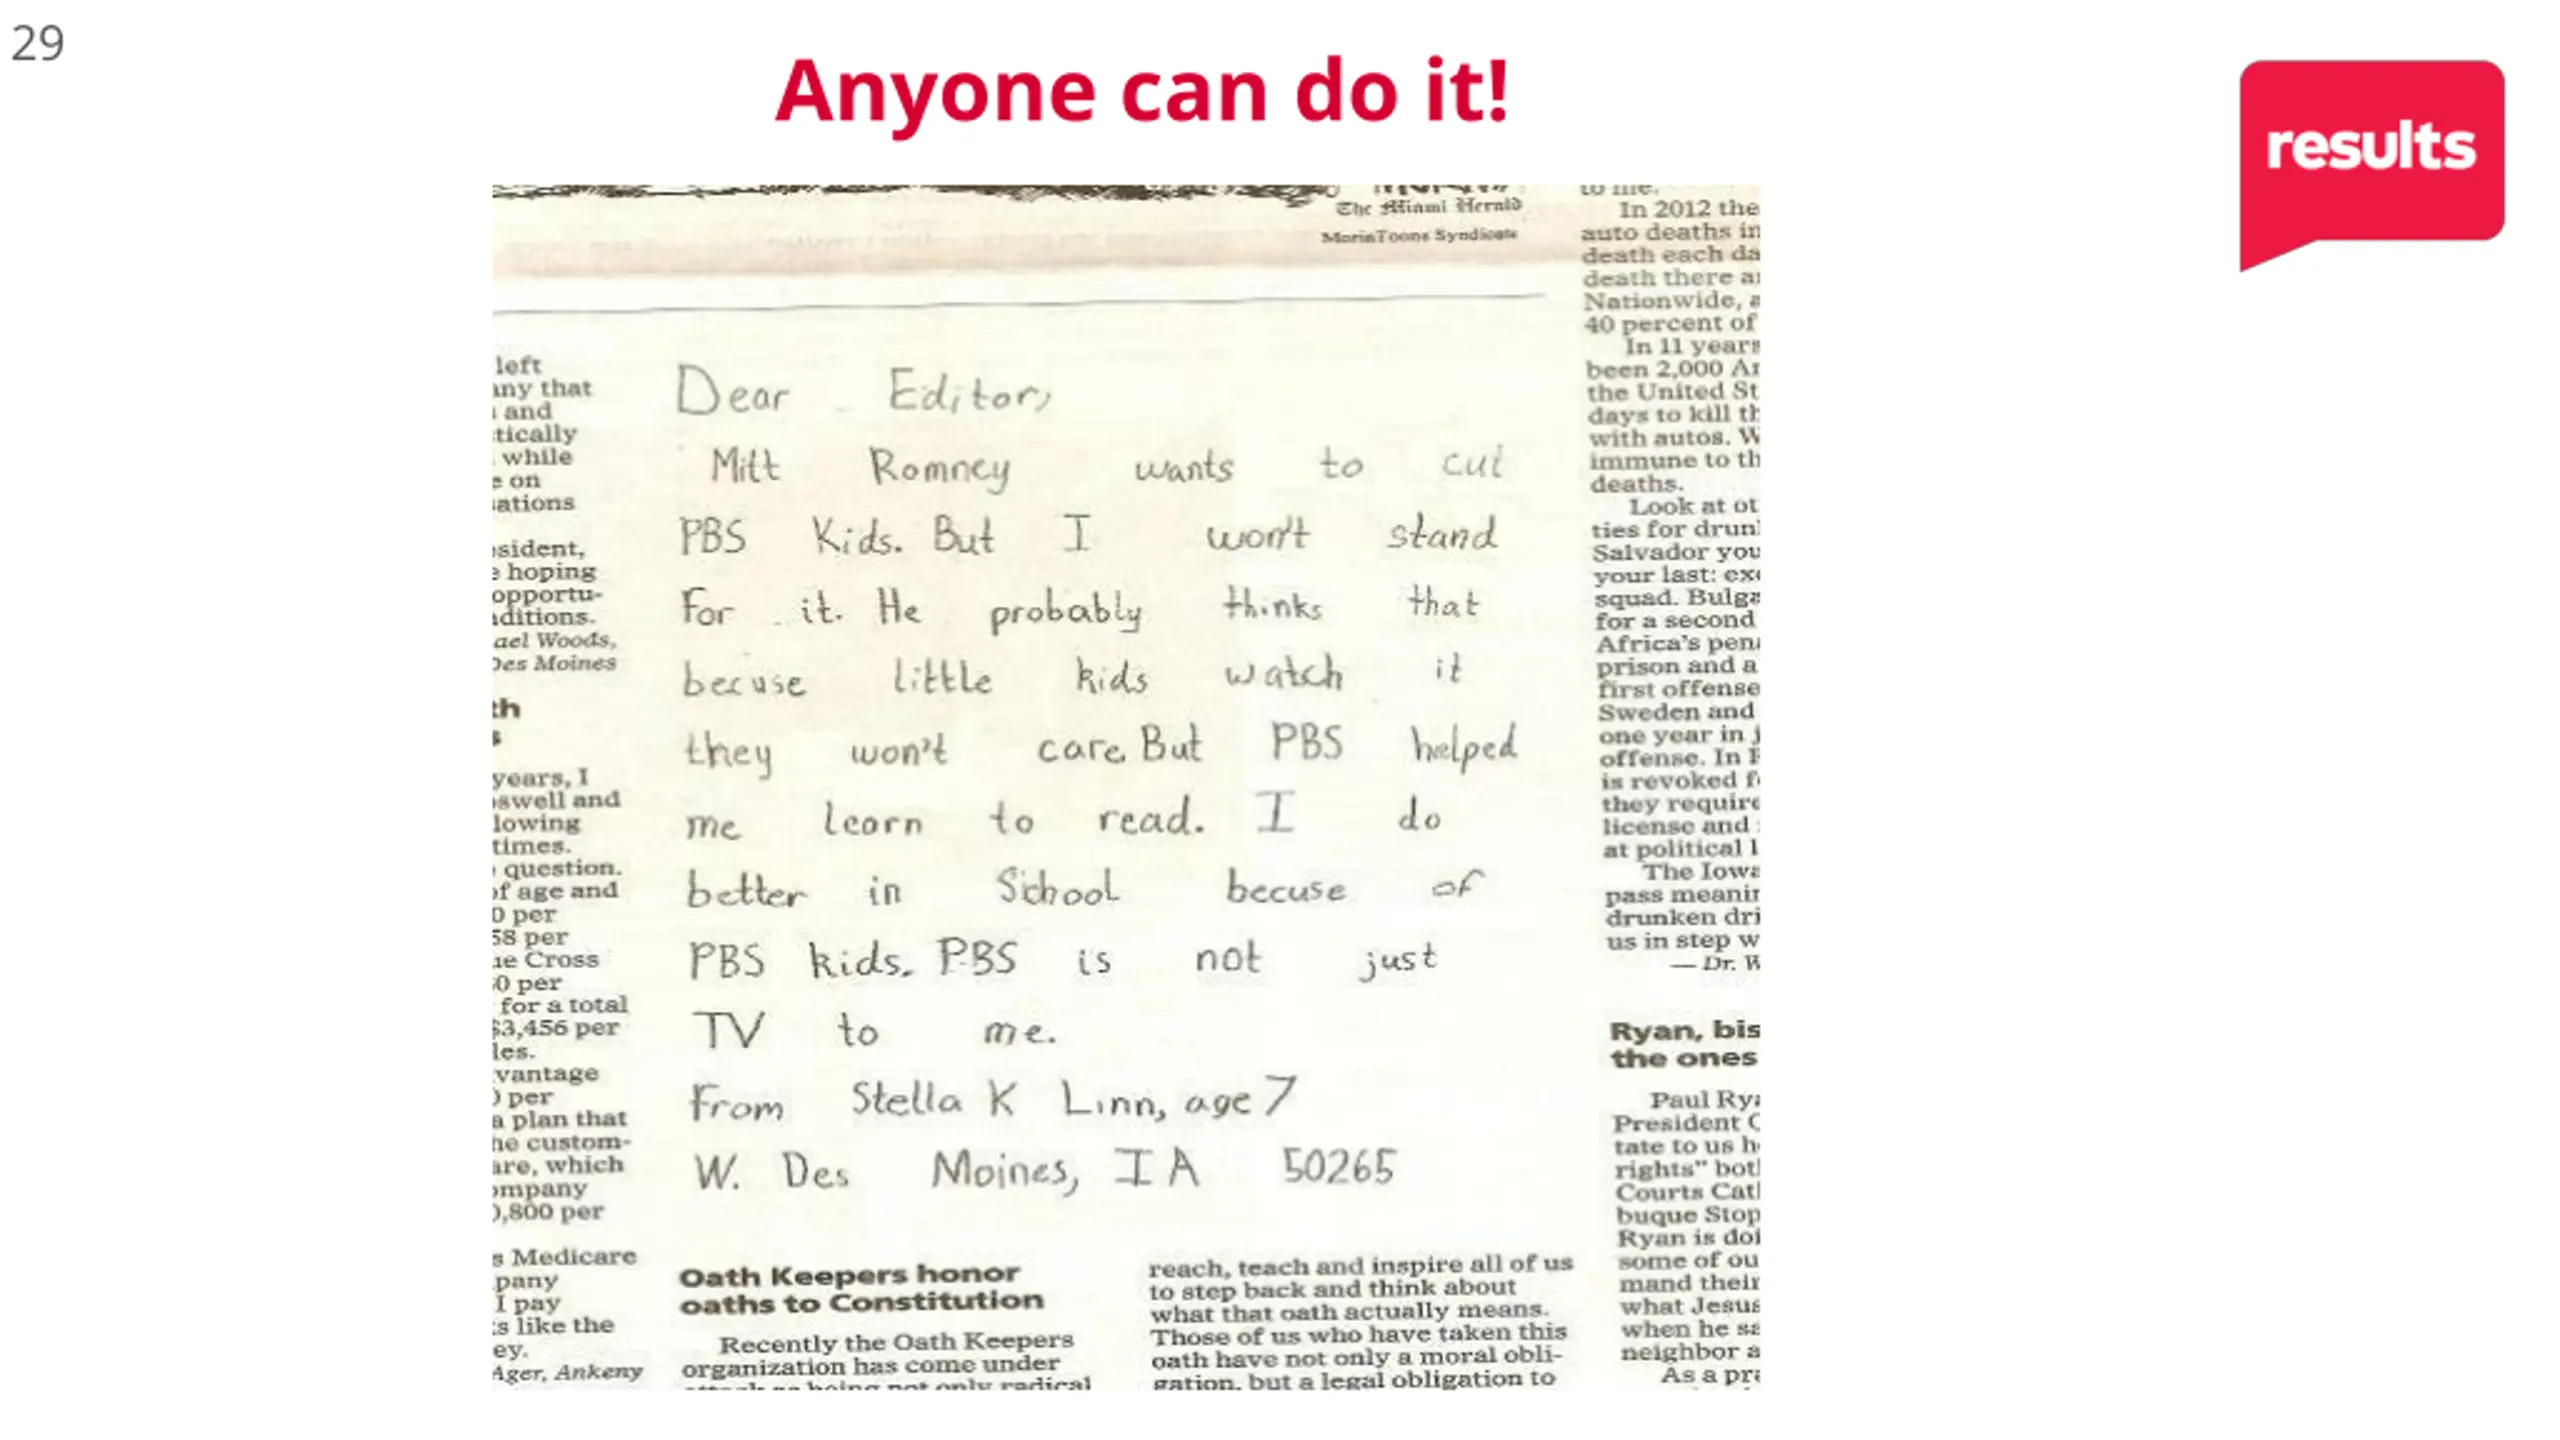 29
Anyone can do it!
results
The Miami Herald
MorinToons Syndicate
left
any that
and
tically
while
on
sations
sident,
hoping
opportu-
ditions.
ael Woods,
Des Moines
th
years, I
swell and
lowing
times.
question.
of age and
0 per
58 per
ue Cross
0 per
for a total
$3,456 per
les.
vantage
0 per
a plan that
he custom-
are, which
ompany
0,800 per
s Medicare
pany
I pay
s like the
ey.
Ager, Ankeny
Dear Editor,
Mitt Romney wants to cut
PBS Kids. But I won't stand
For it. He probably thinks that
becuse little kids watch it
they won't care. But PBS helped
me learn to read. I do
better in School becuse of
PBS kids. PBS is not just
TV to me.
From Stella K Linn, age 7
W. Des Moines, IA 50265
Oath Keepers honor
oaths to Constitution
Recently the Oath Keepers
organization has come under
attack as being not only radical
reach, teach and inspire all of us
to step back and think about
what that oath actually means.
Those of us who have taken this
oath have not only a moral obli-
gation, but a legal obligation to
to me.
In 2012 the
auto deaths in
death each da
death there a
Nationwide, a
40 percent of
In 11 years
been 2,000 A
the United St
days to kill th
with autos. W
immune to th
deaths.
Look at ot
ties for drun
Salvador you
your last: ex
squad. Bulga
for a second
Africa's pen
prison and a
first offense
Sweden and
one year in j
offense. In
is revoked f
they require
license and
at political l
The Iowa
pass meanin
drunken dri
us in step w
— Dr. W
Ryan, bis
the ones
Paul Rya
President
tate to us h
rights" bot
Courts Cat
buque Stop
Ryan is doi
some of ou
mand their
what Jesus
when he sa
neighbor a
As a pra